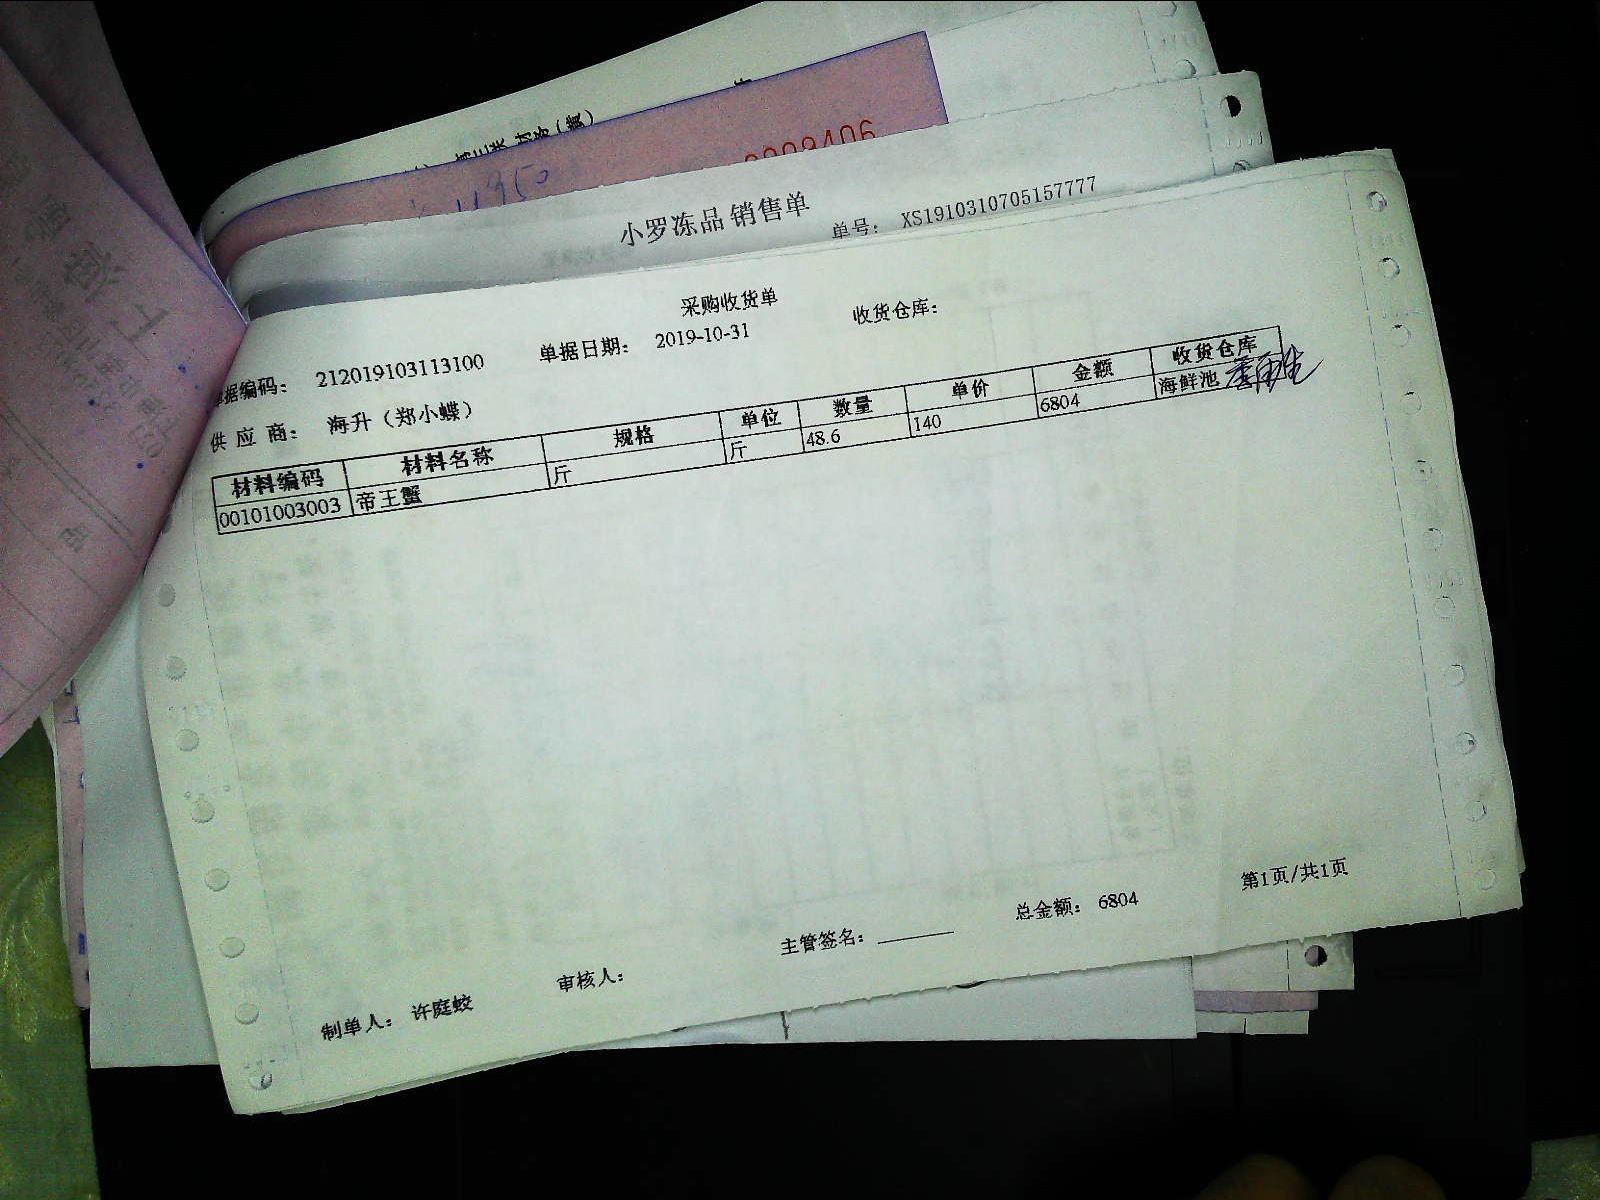 1950
0009406
小罗冻品 销售单
单号： XS1910310705157777
采购收货单
单据编码： 212019103113100 单据日期： 2019-10-31 收货仓库：
供 应 商： 海升（郑小蝶）
材料编码 材料名称 规格 单位 数量 单价 金额 收货仓库
00101003003 帝王蟹 斤 斤 48.6 140 6804 海鲜池
制单人： 许庭蛟 审核人： 主管签名： 总金额： 6804 第1页/共1页